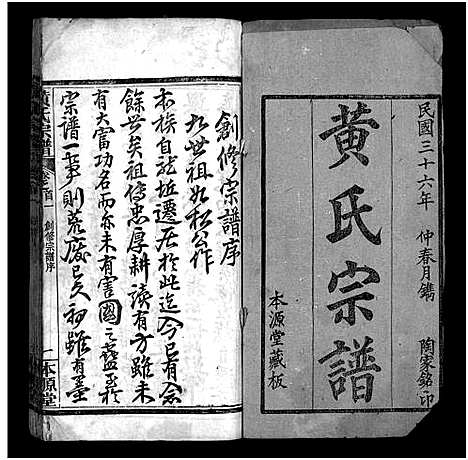 民國三十六年 仲春月鐫 陶家銘印
黃氏宗譜
本源堂藏板
創修宗譜序
九世祖如松公作
本族自龍坵遷居於此迄今已有念
餘世矣祖傳忠厚耕讀有方雖未
有大富功名而亦未有害國之蠹至於
宗譜一事則荒廢已久初雖有墨
黃氏宗譜 卷之首一 創修宗譜序 一 本源堂